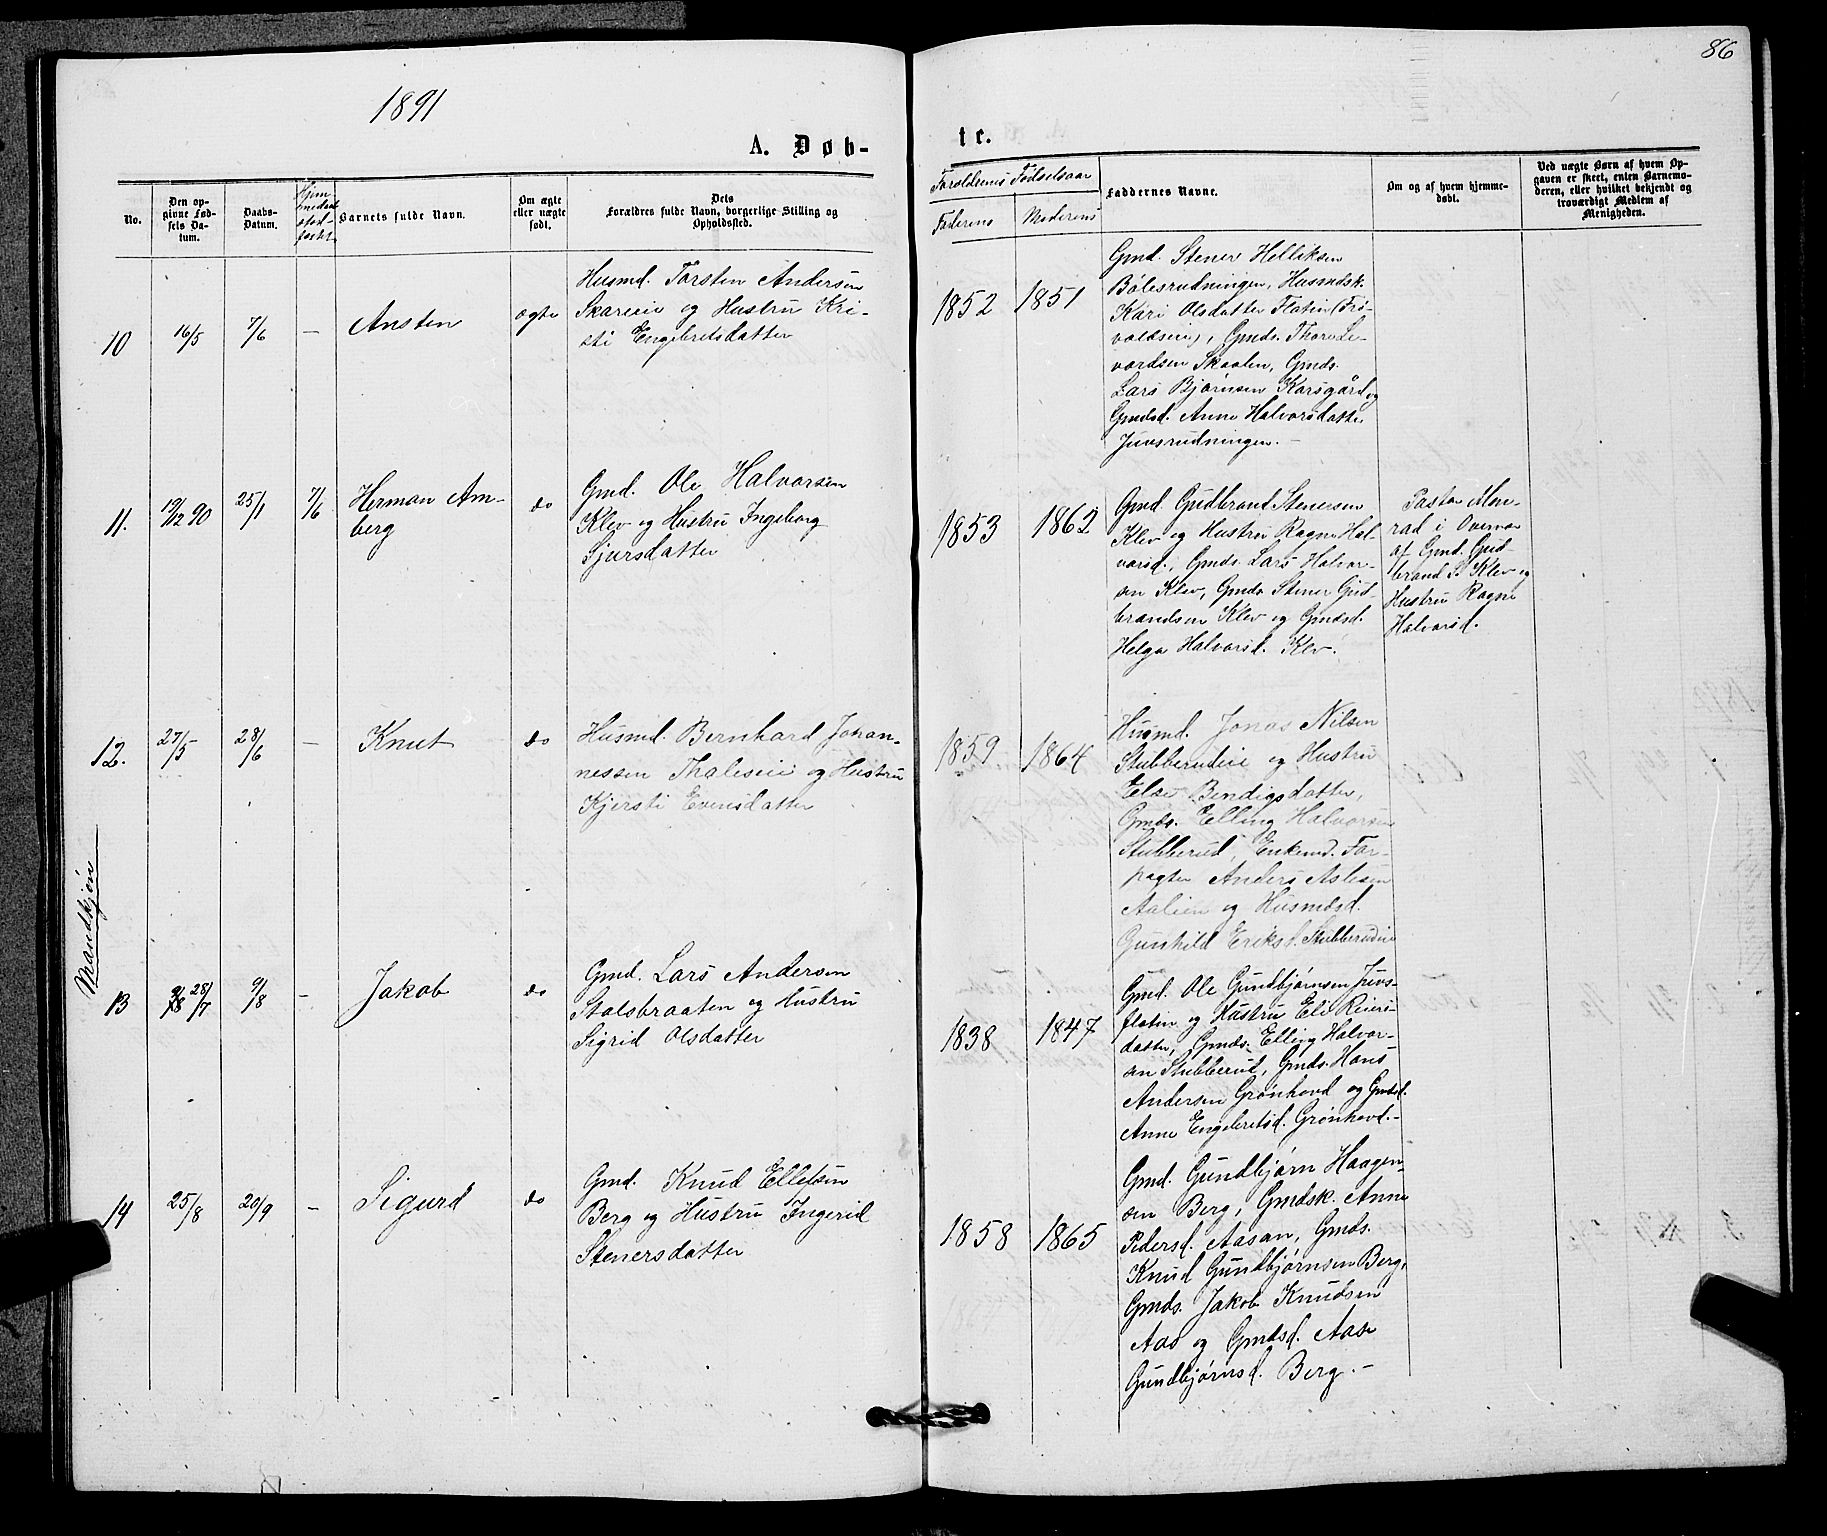 86
1891
A. Døb-
te.
No.
Den op-
givne Fød-
sels Da-
tum.
Daabs-
Datum.
Barnets fulde Navn.
Om ægte
eller uægte
født.
Dets
Forældres fulde Navn, borgerlige Stilling og
Opholdssted.
Forældrenes Fødselsaar
Faderens
Moderens
Faddernes Navne.
Om og af hvem hjemme-
døbt.
Ved uægte Børn af hvem Op-
gaven er skeet, enten Barnemo-
deren, eller hvilket bekjendt og
troværdigt Medlem af
Menigheden.
Mandkjøn
10
16/5
7/6
—
Ansten
ægte
Husmd. Torsten Andersen
Skareie og Hustru Kri-
sti Engebretsdatter
1852
1851
Gmd. Stener Helliksen
Bölesrudningen, Husmdsk.
Kari Olsdatter Flatin (Trö-
valdseie), Gmds. Thore Le-
vordsen Skaalen, Gmds.
Lars Bjørnsen Karsgård og
Gmdsd. Anne Halvorsdatter
Juvsrudningen. —
11.
19/12 90
25/1
7/6
Herman Am-
berg
do
Gmd. Ole Halvorsen
Klev og Hustru Ingeborg
Sjursdatter
1853
1862
Gmd. Gudbrand Stenersen
Klev og Hustru Ragne Hal-
vorsd., Gmds. Lars Halvor-
sen Klev, Gmds Stener Gud-
brandsen Klev og Gmdsd.
Helga Halvorsd. Klev.
Pastor Mon-
rad i
af Gmd. Gud-
brand S. Klev og
Hustru Ragne
Halvorsd.
12.
27/5
28/6
—
Knut
do
Husmd. Bernhard Johan-
nessen Thaleseie og Hustru
Kjersti Evensdatter
1859
1864
Husmd. Jonas Nilsen
Stubberudeie og Hustru
Else Bendigsdatter,
Gmds. Elling Halvorsen
Stubberud, Enkemd. For-
pagter Anders Aslesen
Aalien og Husmdsd.
Gunhild Eriksd. Stubberudeie
13
28/7
9/8
—
Jakob
do
Gmd. Lars Andersen
Stolsbraaten og Hustru
Sigrid Olsdatter
1838
1847
Gmd. Ole Gundbjørnsen Juvs-
flatin og Hustru Eli Reiers-
datter, Gmds. Elling Halvor-
sen Stubberud, Gmds. Hans
Andersen Grønhovd og Gmdsd.
Anne Engebretsd. Grønhovd. —
14
25/8
20/9
—
Sigurd
do
Gmd. Knud Ellefsen
Berg og Hustru Ingerid
Stenersdatter
1858
1865
Gmd. Gundbjørn Haagen-
sen Berg, Gmdsk. Anne
Pedersd. Aasan, Gmds.
Knud Gundbjørnsen Berg,
Gmds. Jakob Knudsen
Aas og Gmdsd. Aase
Gundbjørnsd. Berg. —